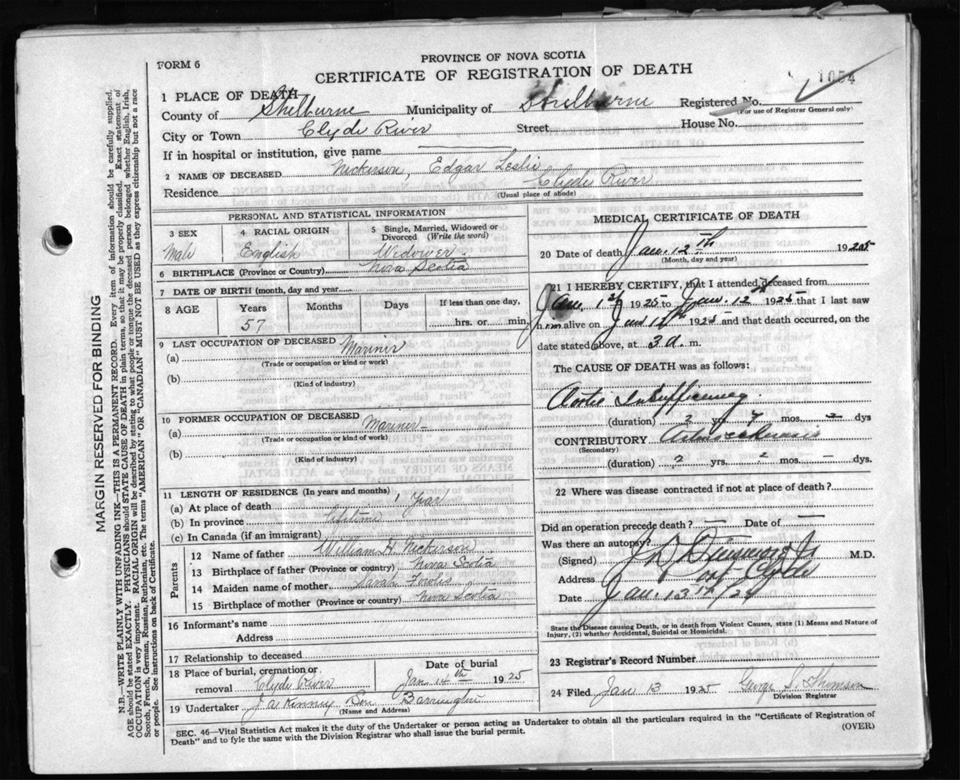 FORM 6
PROVINCE OF NOVA SCOTIA
CERTIFICATE OF REGISTRATION OF DEATH
1054
1 PLACE OF DEATH
County of Shelburne Municipality of Shelburne Registered No.
(For use of Registrar General only)
City or Town Clyde River Street House No.
If in hospital or institution, give name
2 NAME OF DECEASED Nickerson, Edgar Leslie
Residence Clyde River
(Usual place of abode)
PERSONAL AND STATISTICAL INFORMATION
3 SEX 4 RACIAL ORIGIN 5 Single, Married, Widowed or
Divorced (Write the word)
Male English Widower
6 BIRTHPLACE (Province or Country) Nova Scotia
7 DATE OF BIRTH (month, day and year)
8 AGE Years Months Days If less than one day,
57 hrs. or min.
9 LAST OCCUPATION OF DECEASED Mariner
(a)
(Trade or occupation or kind or work)
(b)
(Kind of industry)
10 FORMER OCCUPATION OF DECEASED Mariner
(a)
(Trade or occupation or kind of work)
(b)
(Kind of industry)
11 LENGTH OF RESIDENCE (In years and months)
(a) At place of death 1 Year
(b) In province Lifetime
(c) In Canada (if an immigrant)
Parents
12 Name of father William H. Nickerson
13 Birthplace of father (Province or country) Nova Scotia
14 Maiden name of mother Sarah
15 Birthplace of mother (Province or country) Nova Scotia
16 Informant's name
Address
17 Relationship to deceased
18 Place of burial, cremation or removal Clyde River
Date of burial
Jan 14th 1925
19 Undertaker Son Barrington
(Name and Address)
MEDICAL CERTIFICATE OF DEATH
20 Date of death Jan. 12th 1925
(Month, day and year)
21 I HEREBY CERTIFY, that I attended deceased from
Jan. 1st 1925 to Jan. 12th 1925 that I last saw
him alive on Jan 1925 and that death occurred, on
date stated above, at 3 a. m.
The CAUSE OF DEATH was as follows:
Aortic Insufficiency
(duration) 2 yrs. mos. dys
CONTRIBUTORY
(Secondary)
(duration) 2 yrs. mos. dys.
22 Where was disease contracted if not at place of death?
Did an operation precede death? Date of
Was there an autopsy?
(Signed) M.D.
Address Clyde
Date Jan. 13th/25
State the Disease causing Death, or in death from Violent Causes, state (1) Means and Nature of
Injury, (2) whether Accidental, Suicidal or Homicidal.
23 Registrar's Record Number
24 Filed Jan 13 1925 George S. Thomson
Division Registrar
SEC. 46—Vital Statistics Act makes it the duty of the Undertaker or person acting as Undertaker to obtain all the particulars required in the "Certificate of Registration of
Death" and to fyle the same with the Division Registrar who shall issue the burial permit. (OVER)
MARGIN RESERVED FOR BINDING
N.B.—WRITE PLAINLY WITH UNFADING INK—THIS IS A PERMANENT RECORD. Every item of information should be carefully supplied.
AGE should be stated EXACTLY. PHYSICIANS should STATE CAUSE OF DEATH in plain terms, so that it may be properly classified. Exact statement of
OCCUPATION is very important. RACIAL ORIGIN will be described by stating to what people or tongue the deceased person belonged whether English, Irish,
Scotch, French, German, Russian, Ruthenian, etc. The terms "AMERICAN" OR "CANADIAN" MUST NOT BE USED as they express citizenship but not a race
or people. See instructions on back of Certificate.